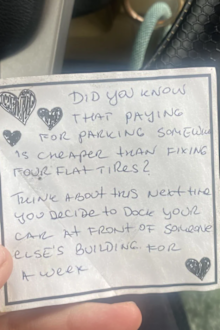 DID YOU KNOW
THAT PAYING
FOR PARKING SOMEWHE
IS CHEAPER THAN FIXING
FOUR FLAT TIRES?
THINK ABOUT THIS NEXT TIME
YOU DECIDE TO DOCK YOUR
CAR AT FRONT OF SOMEONE
ELSE'S BUILDING FOR
A WEEK